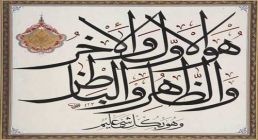 هو الاول والاخر
والظاهر والباطن
وهو بكل شئ عليم